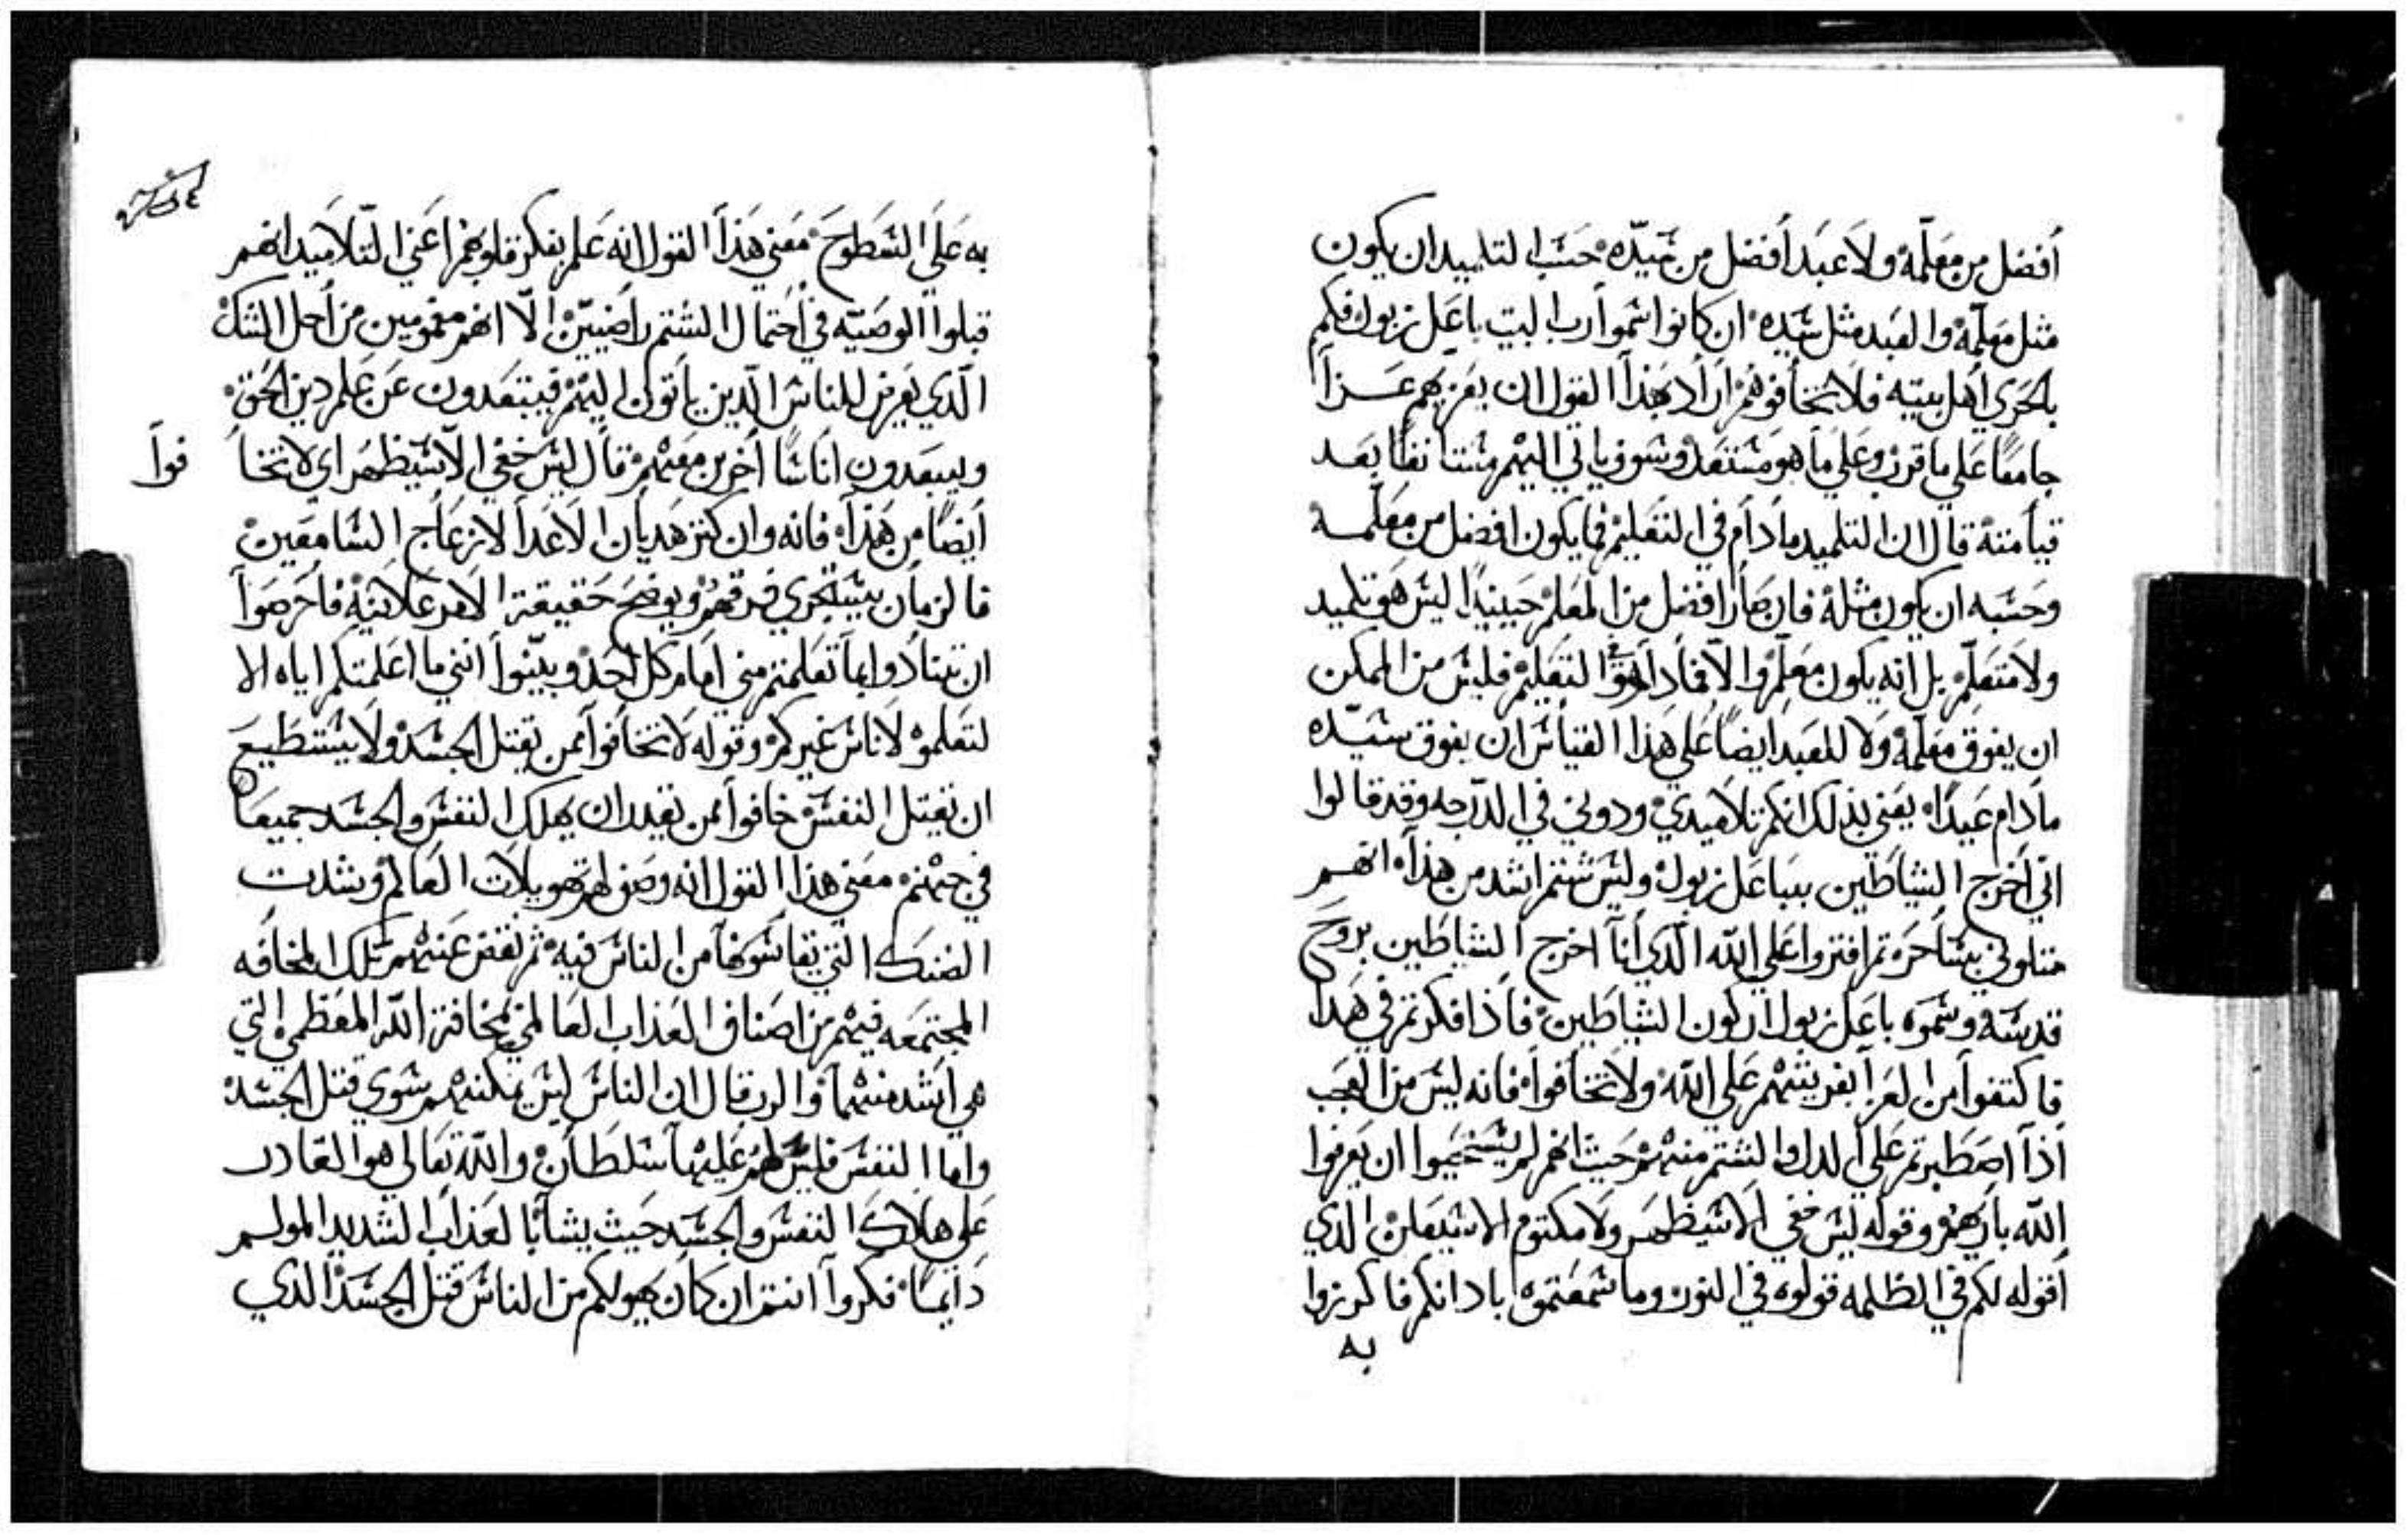 أفضل من معلمه ولا عبد أفضل من سيده حسب التلميد ان يكون
مثل معلمه والعبد مثل سيده ان كانوا سموا رب البيت باعل زبول فكم
بالحري أهل بيته فلا تخافوهم اراد بهذا القول ان يعزيهم عزا
جامعا على ما قرب وعلى ما هو مستعد وسوف ياتي اليهم بعد
قيامته قال ان التلميد ما دام في التعليم فما يكون افضل من معلمه
وحسبه ان يكون مثله فان صار افضل من المعلم حينيدا ليس هو تلميد
ولا متعلم بل انه يكون معلم والا فما دام هو في التعليم فليس من الممكن
ان يفوق معلمه ولا للعبد ايضا على هذا القياس ان يفوق سيده
ما دام عبدا يعني بذلك انكم تلاميدي ودوني في الدرجه وقد قالوا
اني أخرج الشياطين بباعل زبول وليس شتم اشد من هذا انهم
متلوني بساحر ثم افتروا على الله الدي أنا اخرج الشياطين بروح
قدسه وسموه باعل زبول اركون الشياطين فاذا فكرتم في هذا
فاكتفوا من العزا بفريتهم على الله ولا تخافوا فانه ليس من العجب
أذا اصطبرتم على الدل والشتم منهم حيث انهم لم يستحيوا ان يعرفوا
الله باريهم وقوله ليس خفي الا سيظهر ولا مكتوم الا سيعلن الدي
أقوله لكم في الظلمه قولوه في النور وما سمعتموه بادانكم فاكرزوا
به
به على السطوح معني هذا القول انه علم بفكر قلوبهم اعني التلاميد انهم
قبلوا الوصيه في احتمال الشتم راضيين الا انهم مغمومين من أجل الشك
الدي يعرض للناس الدين ياتون اليهم فيبتعدون عن علم دين الحق
ويبعدون اناسا أخرين معهم قال ليس خفي الا سيظهر اي لا تخا
فوا
أيضا من هذا فانه وان كتر هديان الاعدا لازعاج السامعين
فالزمان سيخزي فرقهم ويوضح حقيقة الامر علانيه فاحرصوا
ان تنادوا بما تعلمتم مني امام كل أحد وبينوا انني ما اعلمتكم اياه الا
لتعلموه لاناس غيركم وقوله لا تخافوا ممن يقتل الجسد ولا يستطيع
ان يقتل النفس خافوا ممن يقدر ان يهلك النفس والجسد جميعا
في جهنم معني هذا القول انه وصف لهم تهويلات العالم وشدت
الضنك التي يقاسونها من الناس فيه ثم نقض عنهم تلك المخافه
المجتمعه فيهم من اصناف العذاب العالمي بمخافة الله العظمي التي
هي أشد منها والرب قال ان الناس ليس يمكنهم سوي قتل الجسد
واما النفس فليس لهم عليها سلطان والله تعالي هو القادر
على هلاك النفس والجسد حيث يشا بالعذاب الشديد المولم
دايما فكروا انتم ان كان يهولكم من الناس قتل الجسد الدي